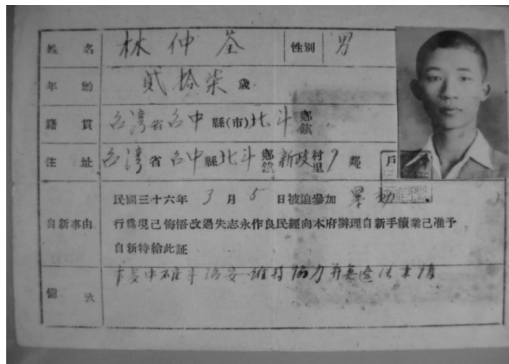 姓名 林仲荃 性別 男
年齡 貳拾柒歲
籍貫 台灣省台中縣(市)北斗鄉鎮
住址 台灣省台中縣北斗鄉鎮新政村里9鄰戶
民國三十六年3月5日被迫參加暴動
自新事由 行為現已悔悟改過失志永作良民經向本府辦理自新手續業已准予
自新特給此証